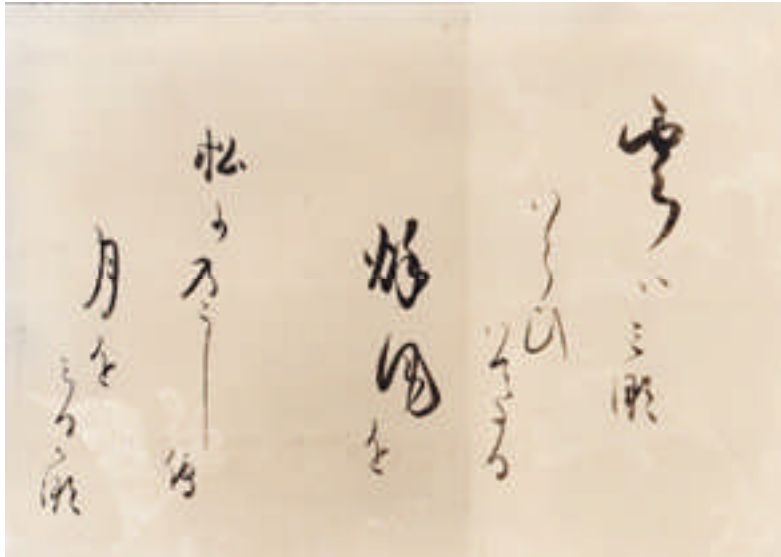 雲はみな
はらひ
はてたる
秋風を
松にのこして
月を
みるかな